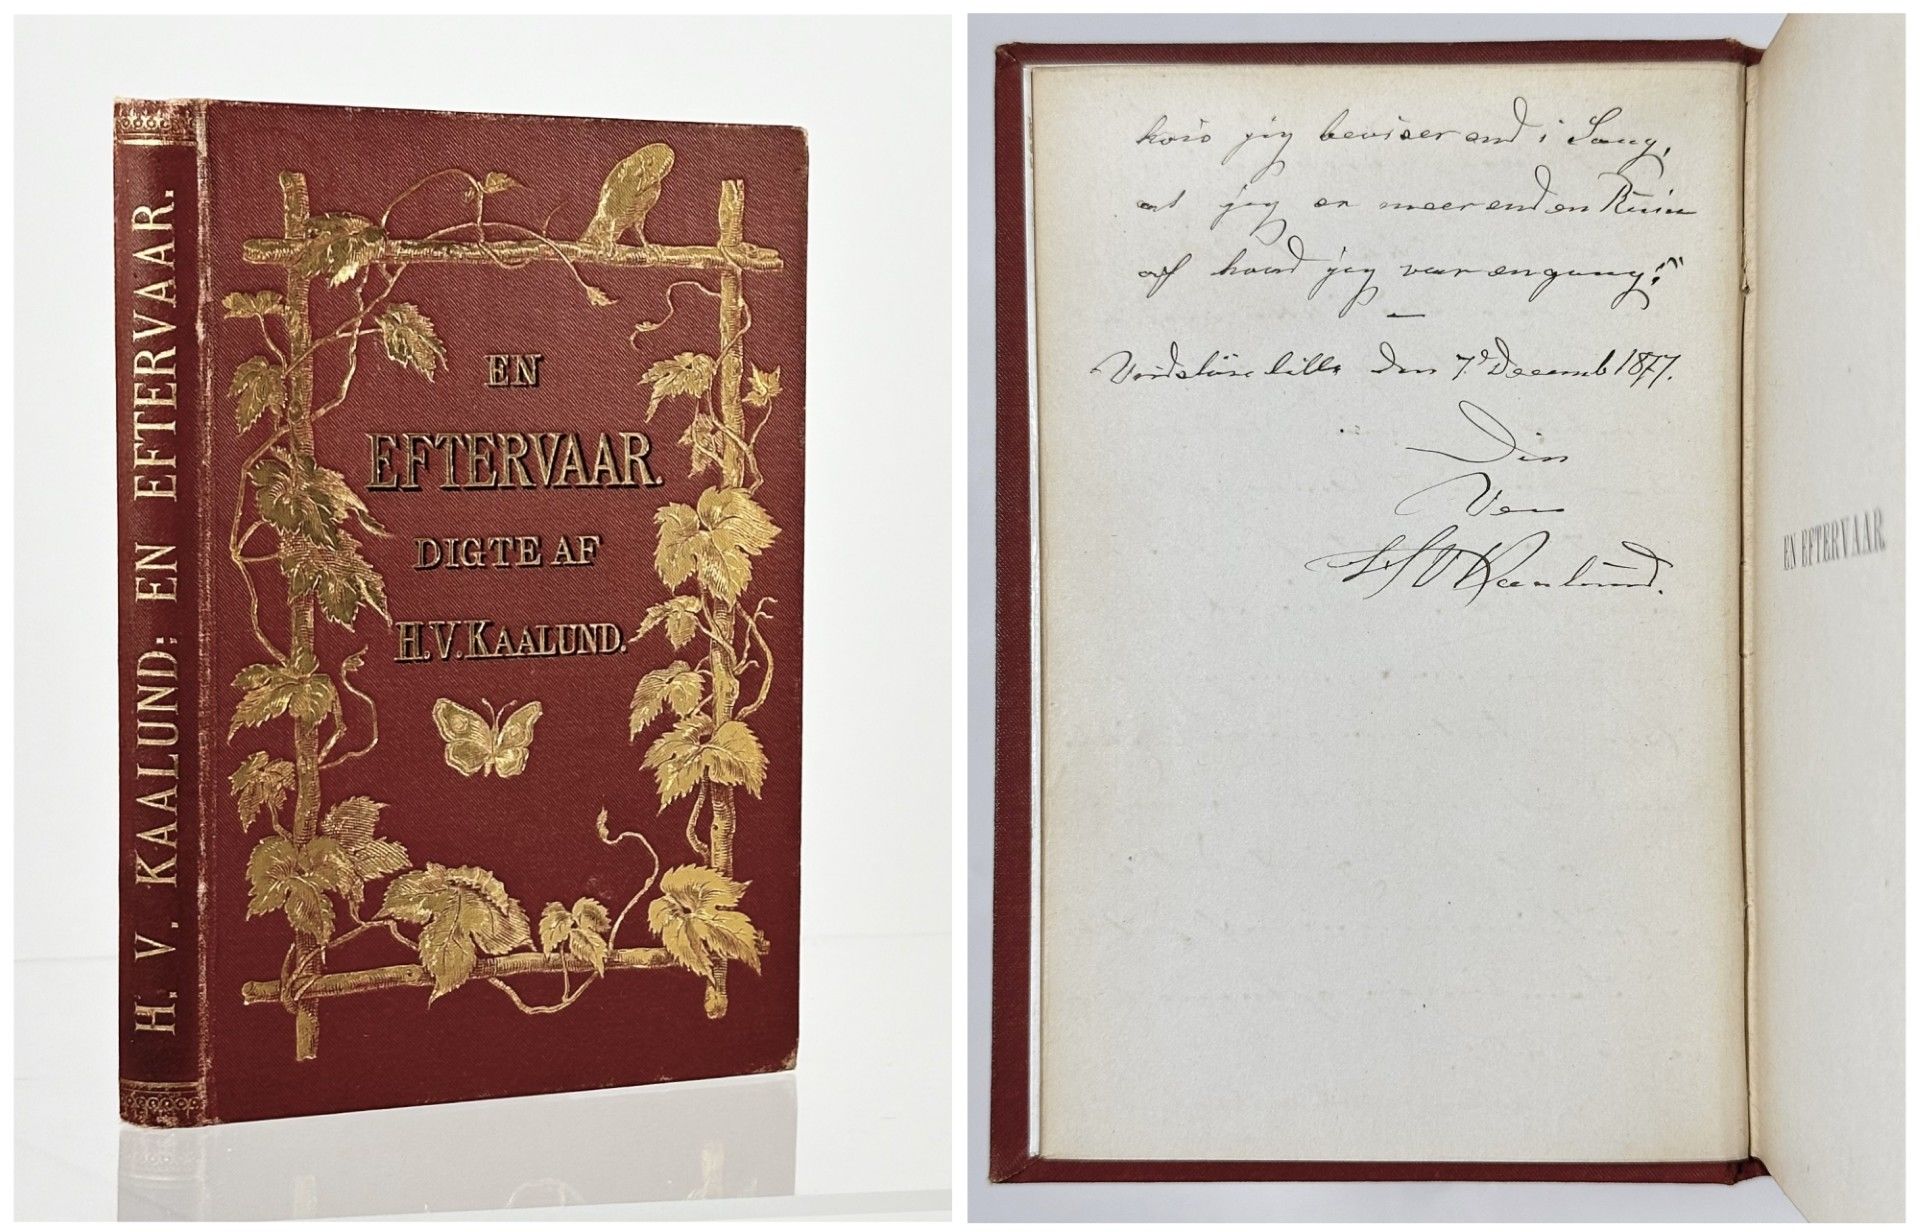 H. V. KAALUND: EN EFTERVAAR.
EN
EFTERVAAR.
DIGTE AF
H. V. KAALUND.
hvis jeg beviser end i Sang,
at jeg er meer end en Ruin
af hvad jeg var engang!"
—
Vridsløse lille den 7d Decemb 1877.
Din
Ven
HVKaalund.
EN EFTERVAAR